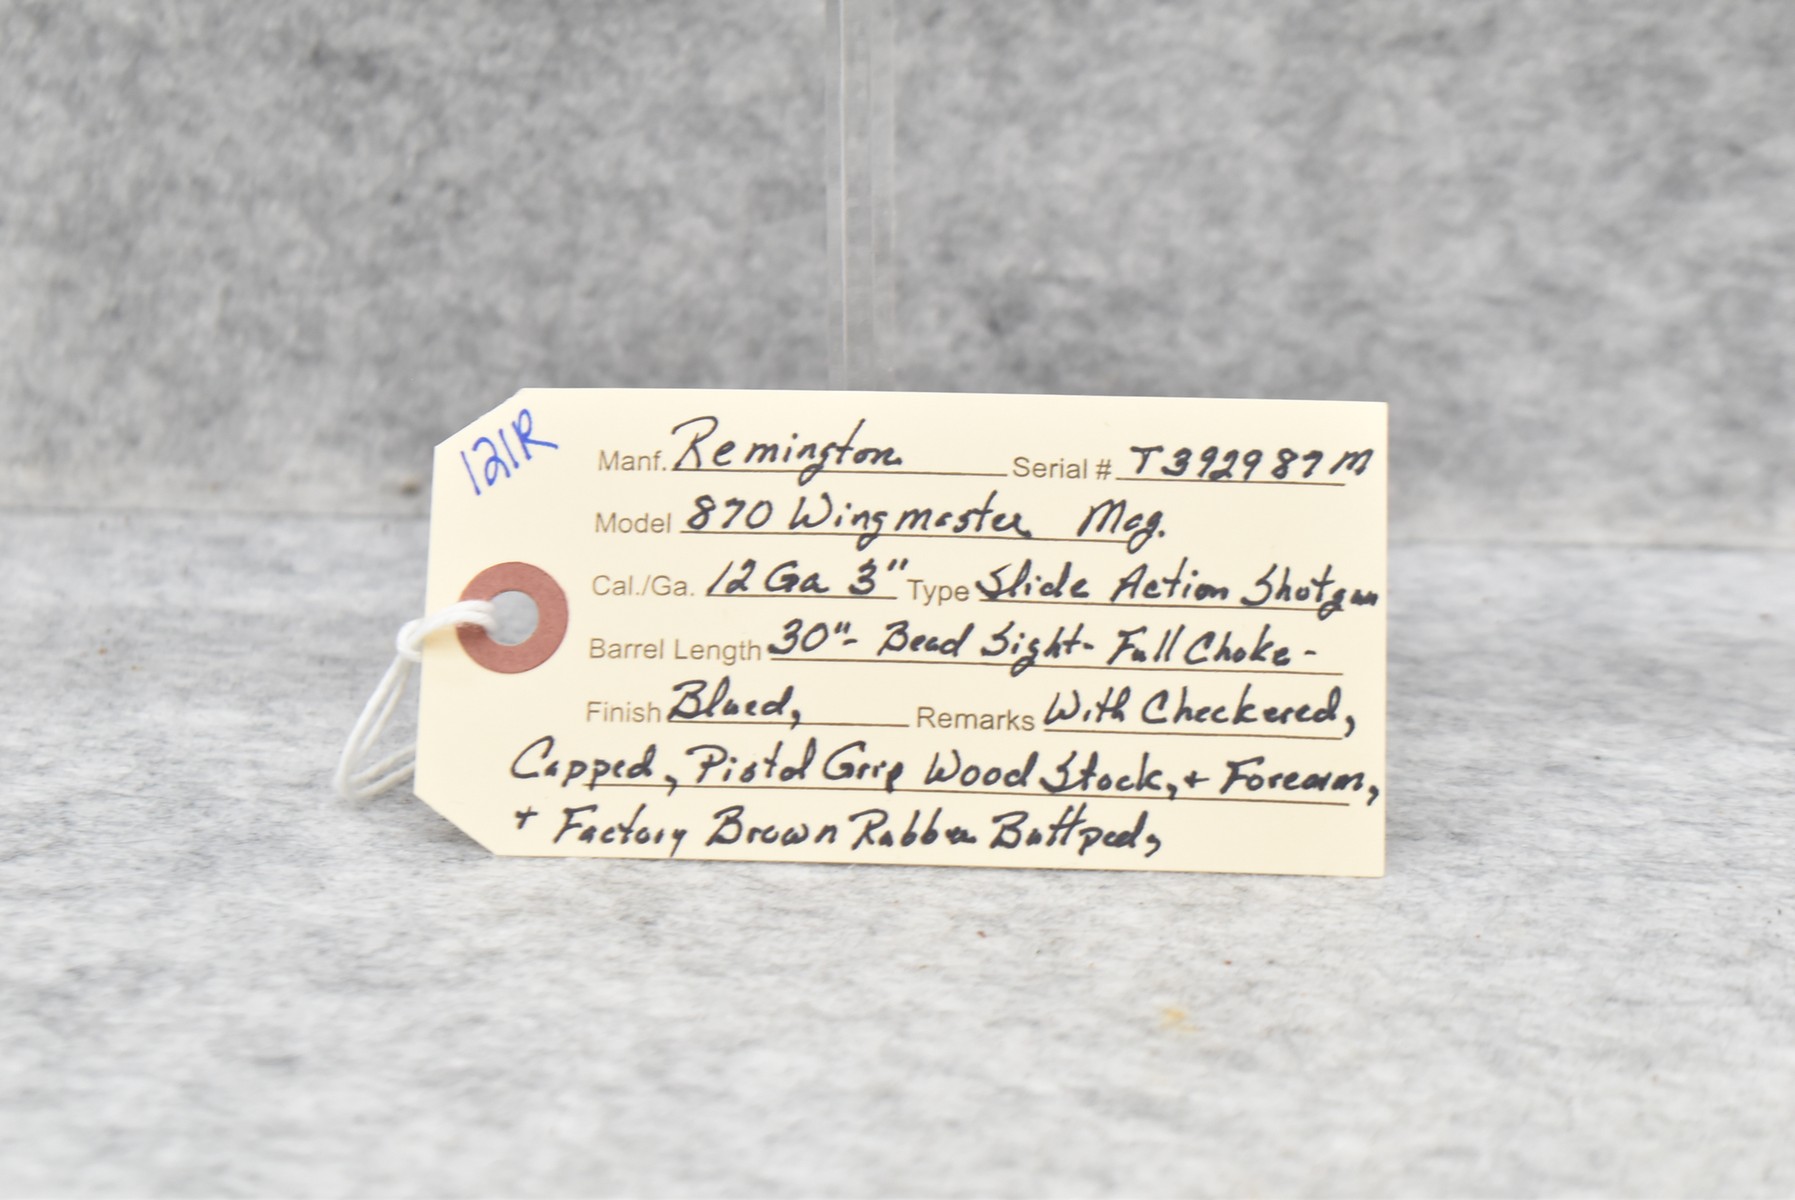 121R
Manf. Remington Serial # T392987M
Model 870 Wingmaster Mag.
Cal./Ga. 12 Ga 3" Type Slide Action Shotgun
Barrel Length 30"- Bead Sight- Full Choke -
Finish Blued, Remarks With Checkered,
Capped, Pistol Grip Wood Stock, + Forearm,
+ Factory Brown Rubber Buttpad,